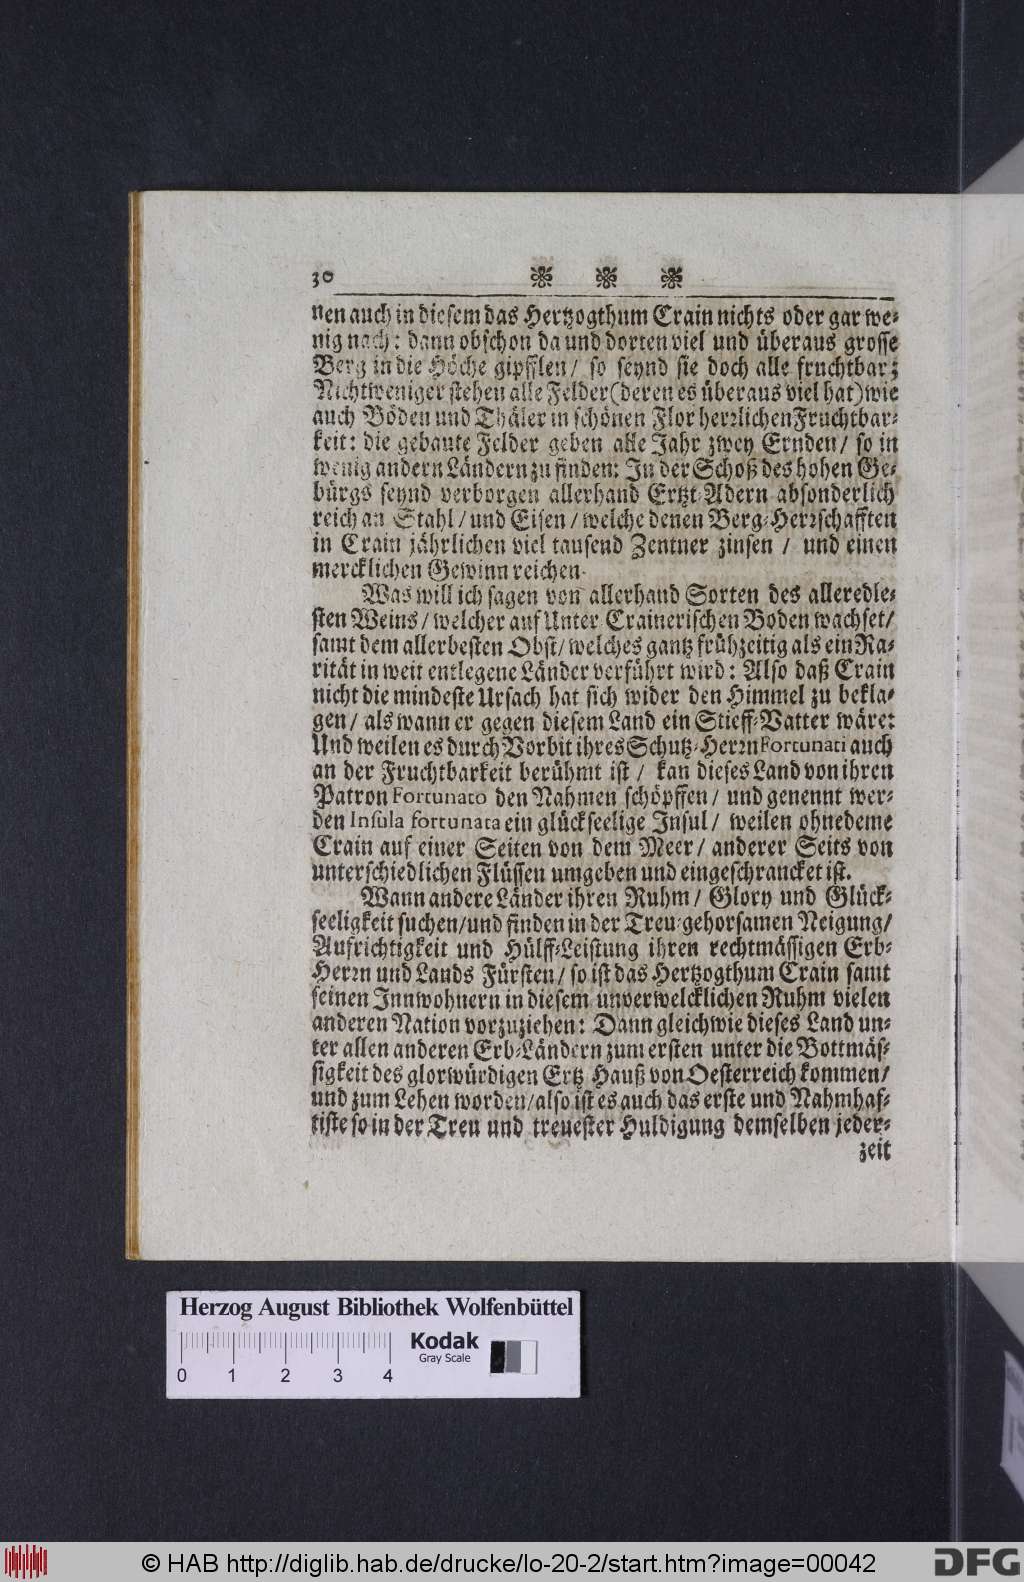 30
nen auch in diesem das Hertzogthum Crain nichts oder gar we-
nig nach: dann obschon da und dorten viel und überaus grosse
Berg in die Höche gipfflen / so seynd sie doch alle fruchtbar;
Nichtweniger stehen alle Felder (deren es überaus viel hat) wie
auch Böden und Thäler in schönen Flor herrlichen Fruchtbar-
keit: die gebaute Felder geben alle Jahr zwey Ernden / so in
wenig andern Ländern zu finden: In der Schoß des hohen Ge-
bürgs seynd verborgen allerhand Ertzt-Adern absonderlich
reich an Stahl / und Eisen / welche denen Berg-Herrschafften
in Crain jährlichen viel tausend Zentner zinsen / und einen
mercklichen Gewinn reichen.
Was will ich sagen von allerhand Sorten des alleredle-
sten Weins / welcher auf Unter-Crainerischen Boden wachset /
samt dem allerbesten Obst / welches gantz frühzeitig als ein Ra-
rität in weit entlegene Länder verführt wird: Also daß Crain
nicht die mindeste Ursach hat sich wider den Himmel zu bekla-
gen / als wann er gegen diesem Land ein Stieff-Vatter wäre:
Und weilen es durch Vorbit ihres Schutz-Herrn Fortunati auch
an der Fruchtbarkeit berühmt ist / kan dieses Land von ihren
Patron Fortunato den Nahmen schöpffen / und genennt wer-
den Insula fortunata ein glückseelige Insul / weilen ohnedeme
Crain auf einer Seiten von dem Meer / anderer Seits von
unterschiedlichen Flüssen umgeben und eingeschrancket ist.
Wann andere Länder ihren Ruhm / Glory und Glück-
seeligkeit suchen / und finden in der Treu-gehorsamen Neigung /
Aufrichtigkeit und Hülff-Leistung ihren rechtmässigen Erb-
Herrn und Lands Fürsten / so ist das Hertzogthum Crain samt
seinen Innwohnern in diesem unverwelcklichen Ruhm vielen
anderen Nation vorzuziehen: Dann gleichwie dieses Land un-
ter allen anderen Erb-Ländern zum ersten unter die Bottmäs-
sigkeit des glorwürdigen Ertz Hauß von Oesterreich kommen /
und zum Lehen worden / also ist es auch das erste und Nahmhaf-
tiste so in der Treu und treuester Huldigung demselben jeder-
zeit
Herzog August Bibliothek Wolfenbüttel
Kodak
Gray Scale
0 1 2 3 4
© HAB http://diglib.hab.de/drucke/lo-20-2/start.htm?image=00042
DFG